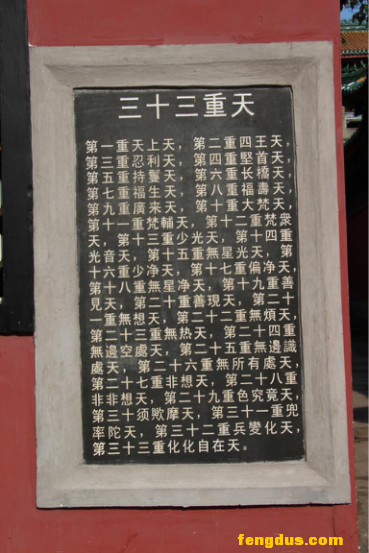 三十三重天
第一重天上天，第二重四王天，
第三重忍利天，第四重堅首天，
第五重持鬘天，第六重长橋天，
第七重福生天，第八重福壽天，
第九重廣来天，第十重大梵天，
第十一重梵輔天，第十二重梵衆
天，第十三重少光天，第十四重
光音天，第十五重無星光天，第
十六重少净天，第十七重偏净天，
第十八重無星净天，第十九重善
見天，第二十重善現天，第二十
一重無想天，第二十二重無煩天，
第二十三重無热天，第二十四重
無邊空處天，第二十五重無邊識
處天，第二十六重無所有處天，
第二十七重非想天，第二十八重
非非想天，第二十九重色究竟天，
第三十须歟摩天，第三十一重兜
率陀天，第三十二重兵變化天，
第三十三重化化自在天。
fengdus.com